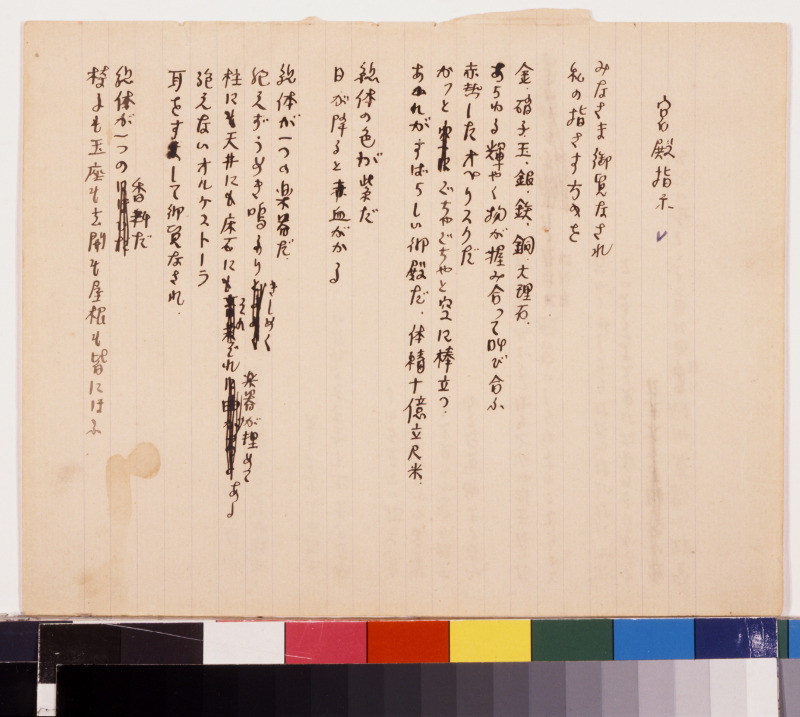 宮殿指示
みなさま御覧なされ
私の指さす方角を
金、硝子玉、銀、鉄、銅、大理石、
あらゆる輝やく物が握み合って叫び合ふ
赤熱したオベリスクだ
かつと ごちやごちやと空に棒立つ、
あれがすばらしい御殿だ、体積十億立尺米、
総体の色が紫だ
日が降ると血がかる
総体が一つの楽器だ
絶えずうめき鳴りきしめく
柱にも天井にも床石にもそれぞれ楽器が埋めてあり
絶えないオルケストーラ
耳をすまして御覧なされ、
総体が一つの香料だ
柱も玉座も玄関も屋根も皆にほふ